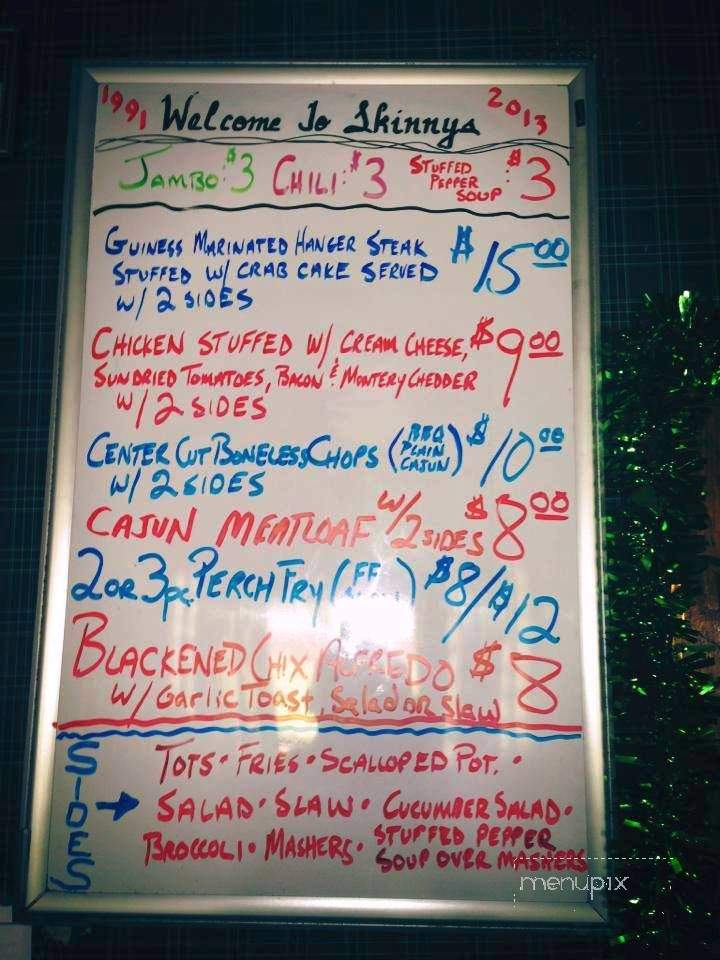 1991 Welcome To Skinnys 2013
JAMBO: $3 CHILI: $3 STUFFED PEPPER SOUP : $3
GUINESS MARINATED HANGER STEAK $15.00
STUFFED W/ CRAB CAKE SERVED
W/ 2 SIDES
CHICKEN STUFFED W/ CREAM CHEESE, $9.00
SUNDRIED TOMATOES, BACON & MONTERY CHEDDER
W/ 2 SIDES
CENTER CUT BONELESS CHOPS (BBQ PLAIN CAJUN) $10.00
W/ 2 SIDES
CAJUN MEATLOAF W/ 2 SIDES $8.00
2 OR 3 pc. PERCH FRY (FF ) $8/$12
BLACKENED CHIX ALFREDO $8
W/ Garlic Toast, Salad or Slaw
SIDES → TOTS • FRIES • SCALLOPED POT. •
SALAD • SLAW • CUCUMBER SALAD •
BROCCOLI • MASHERS • STUFFED PEPPER
SOUP OVER MASHERS
menupix